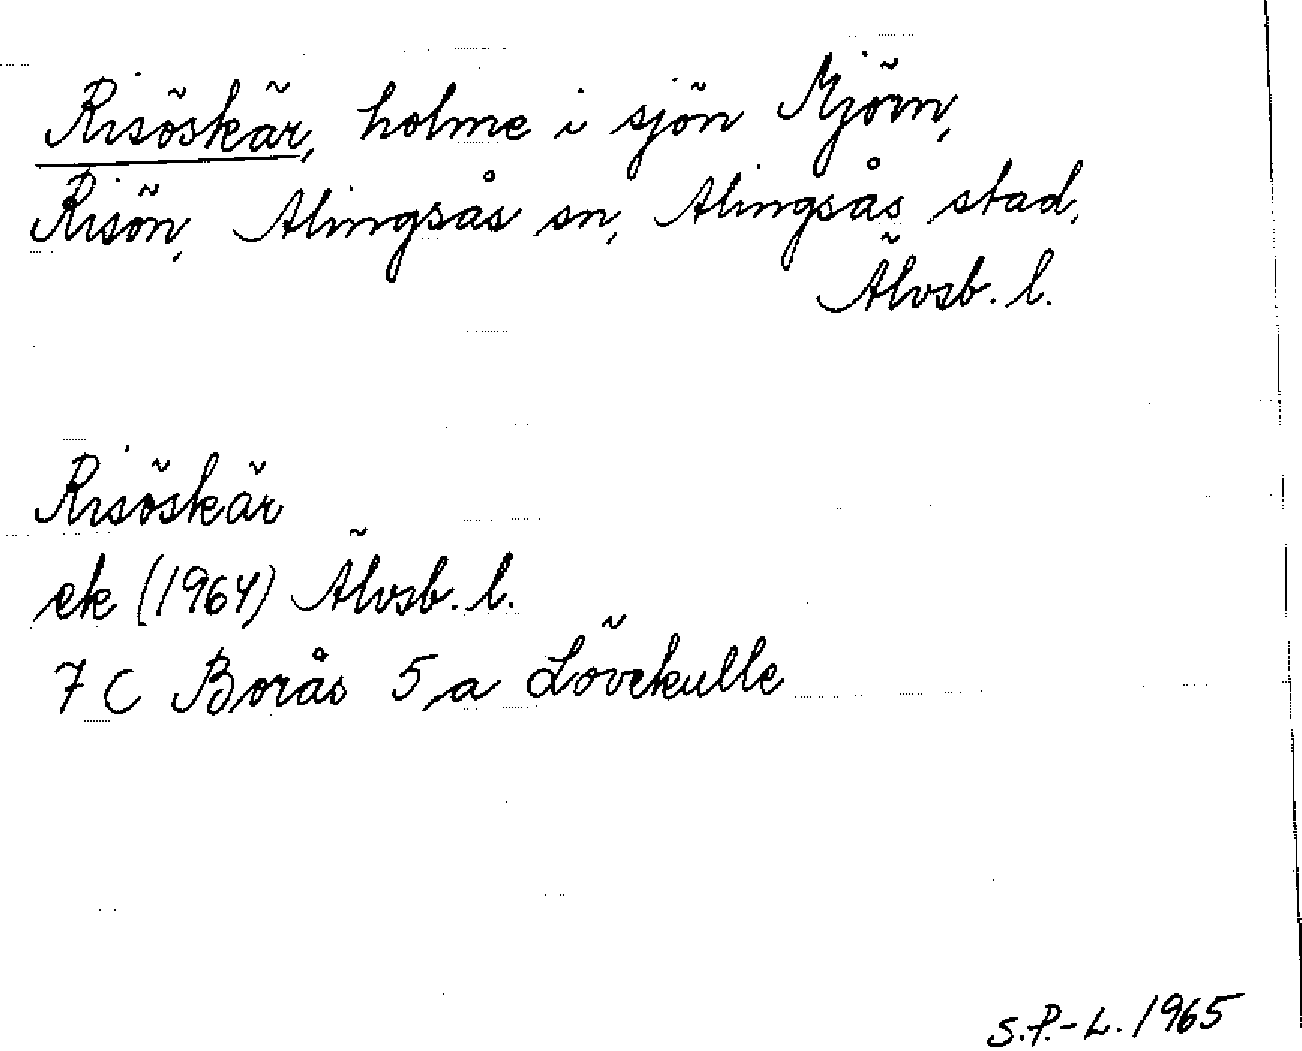 Risöskär, holme i sjön Mjörn,
Risön, Alingsås sn, Alingsås stad,
Älvsb. l.
Risöskär
ek (1964) Älvsb. l.
7 C Borås 5 a Lövekulle
S.P.-L. 1965